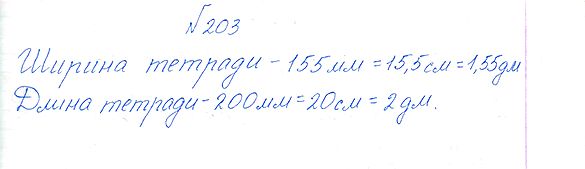 №203
Ширина тетради - 155мм = 15,5см = 1,55дм
Длина тетради - 200мм = 20см = 2дм.